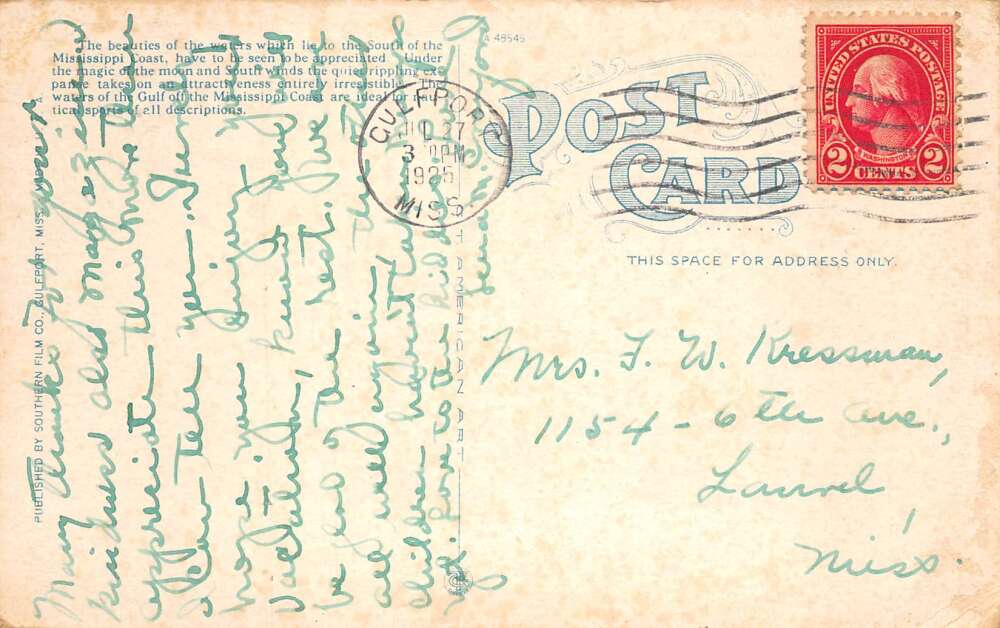 The beauties of the waters which lie to the South of the
Mississippi Coast, have to be seen to be appreciated. Under
the magic of the moon and South winds the quiet rippling ex-
panse takes on an attractiveness entirely irresistible. The
waters of the Gulf off the Mississippi Coast are ideal for nau-
tical sports of all descriptions.
A 48545
POST
CARD
GULFPORT
JUL 27
3 PM
1925
MISS.
UNITED STATES POSTAGE
WASHINGTON
2 CENTS 2
THIS SPACE FOR ADDRESS ONLY.
Mrs. F. W. Kressman,
1154 - 6th Ave.,
Laurel
Miss.
PUBLISHED BY SOUTHERN FILM CO., GULFPORT, MISS.
AMERICAN ART
Many thanks for your
kindness also magazine
appreciate this more than
I can tell you.
hope you enjoy your
vacation, kind
be glad of the rest. We are
all well enjoying the
children haven't
of. Love to the kiddies